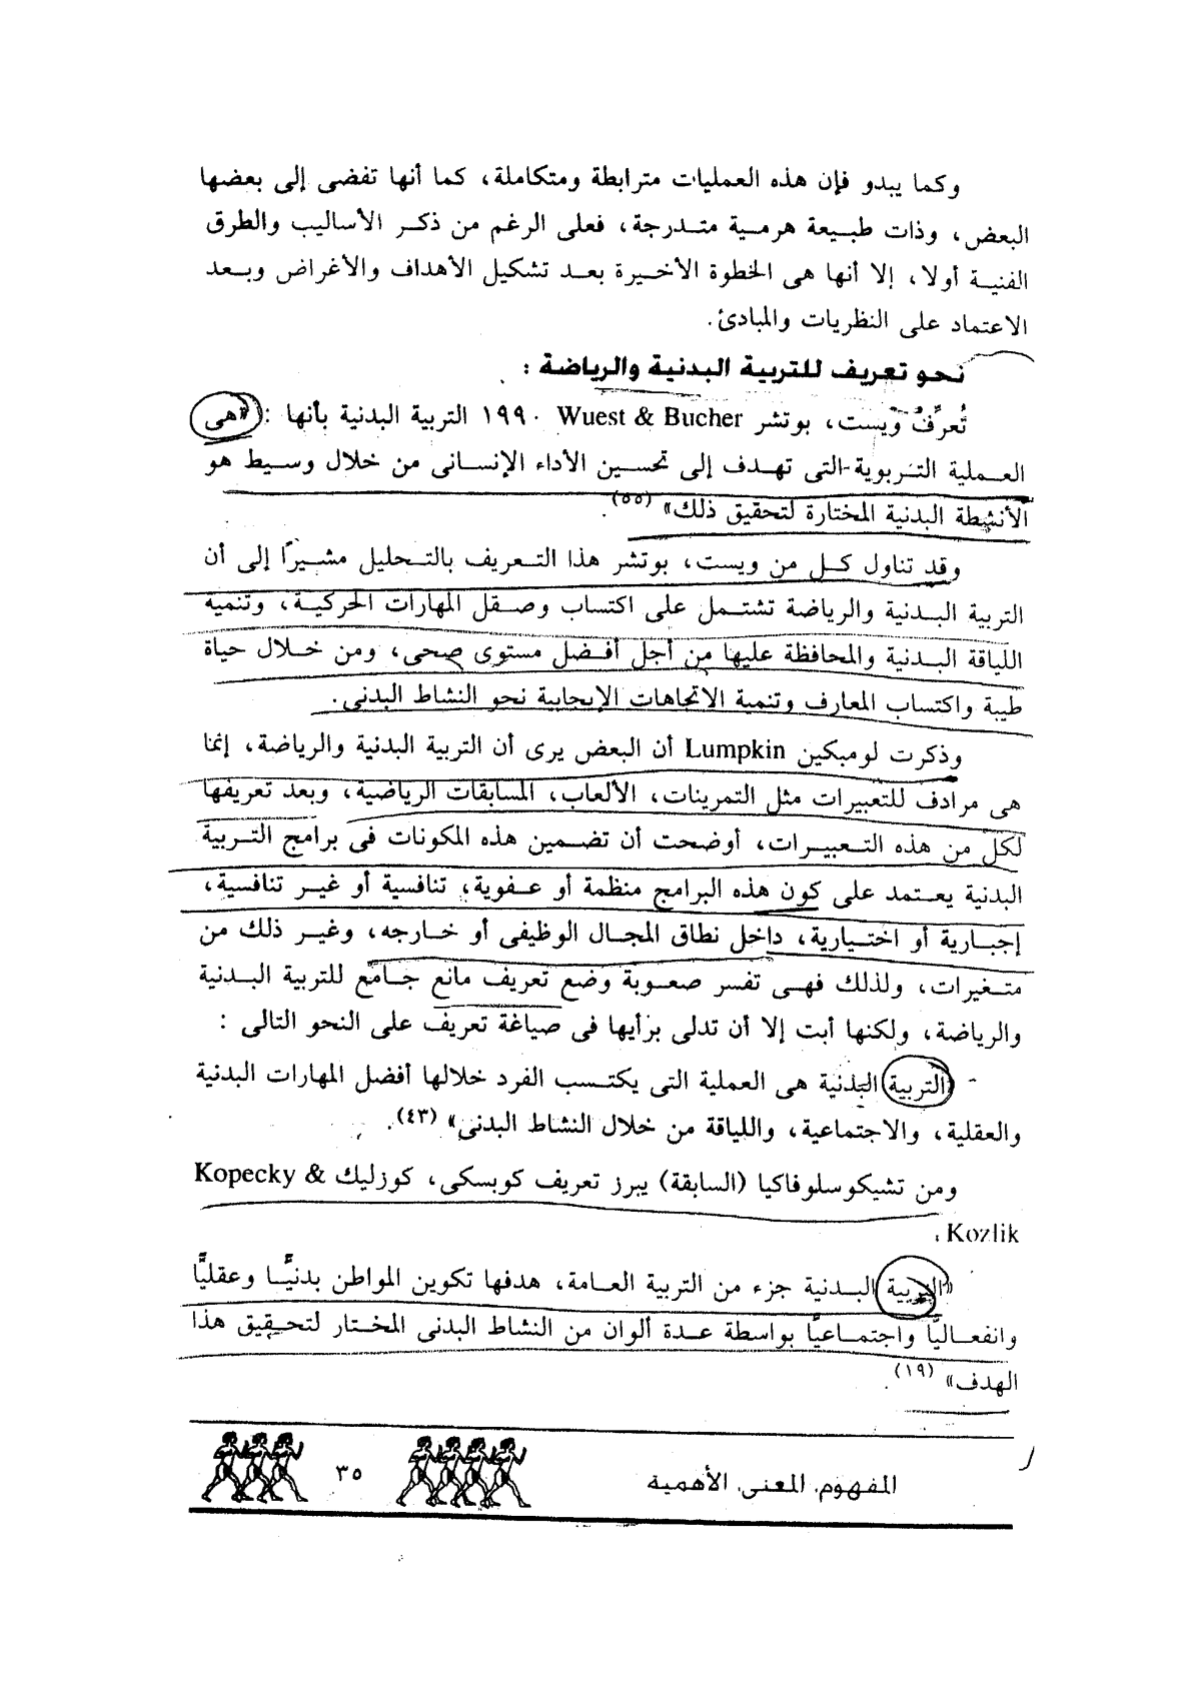 وكما يبدو فإن هذه العمليات مترابطة ومتكاملة، كما أنها تفضى إلى بعضها
البعض، وذات طبيعة هرمية متدرجة، فعلى الرغم من ذكر الأساليب والطرق
الفنية أولا، إلا أنها هى الخطوة الأخيرة بعد تشكيل الأهداف والأغراض وبعد
الاعتماد على النظريات والمبادئ.
نحو تعريف للتربية البدنية والرياضة :
تُعرِّفُ وَيست، بوتشر Wuest & Bucher ١٩٩٠ التربية البدنية بأنها : «هى
العملية التربوية التى تهدف إلى تحسين الأداء الإنسانى من خلال وسيط هو
الأنشطة البدنية المختارة لتحقيق ذلك» (٥٥).
وقد تناول كل من ويست، بوتشر هذا التعريف بالتحليل مشيرًا إلى أن
التربية البدنية والرياضة تشتمل على اكتساب وصقل المهارات الحركية، وتنمية
اللياقة البدنية والمحافظة عليها من أجل أفضل مستوى صحى، ومن خلال حياة
طيبة واكتساب المعارف وتنمية الاتجاهات الإيجابية نحو النشاط البدنى.
وذكرت لومبكين Lumpkin أن البعض يرى أن التربية البدنية والرياضة، إنما
هى مرادف للتعبيرات مثل التمرينات، الألعاب، المسابقات الرياضية، وبعد تعريفها
لكل من هذه التعبيرات، أوضحت أن تضمين هذه المكونات فى برامج التربية
البدنية يعتمد على كون هذه البرامج منظمة أو عفوية، تنافسية أو غير تنافسية،
إجبارية أو اختيارية، داخل نطاق المجال الوظيفى أو خارجه، وغير ذلك من
متغيرات، ولذلك فهى تفسر صعوبة وضع تعريف مانع جامع للتربية البدنية
والرياضة، ولكنها أبت إلا أن تدلى برأيها فى صياغة تعريف على النحو التالى :
- «التربية البدنية هى العملية التى يكتسب الفرد خلالها أفضل المهارات البدنية
والعقلية، والاجتماعية، واللياقة من خلال النشاط البدنى» (٤٣).
ومن تشيكوسلوفاكيا (السابقة) يبرز تعريف كوبسكى، كوزليك Kopecky &
Kozlik ،
«التربية البدنية جزء من التربية العامة، هدفها تكوين المواطن بدنيًّا وعقليًّا
وانفعاليًّا واجتماعيًّا بواسطة عدة ألوان من النشاط البدنى المختار لتحقيق هذا
الهدف» (١٩).
المفهوم. المعنى. الأهمية ٣٥